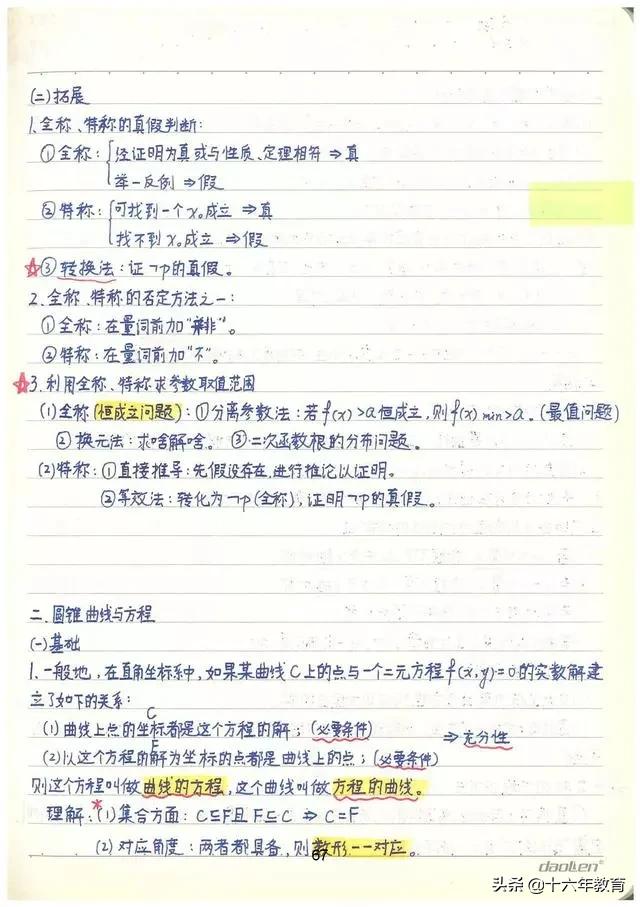 (二)拓展
1.全称、特称的真假判断:
①全称:{经证明为真或与性质、定理相符⇒真
举一反例⇒假
②特称:{可找到一个x₀成立⇒真
找不到x₀成立⇒假
☆③转换法:证¬p的真假。
2.全称、特称的否定方法之一:
①全称:在量词前加“并非”。
②特称:在量词前加“不”。
☆3.利用全称、特称求参数取值范围
(1)全称(恒成立问题):①分离参数法:若f(x)>a恒成立,则f(x)min>a。(最值问题)
②换元法:求啥解啥。③二次函数根的分布问题。
(2)特称:①直接推导:先假设存在,进行推论以证明。
②等效法:转化为¬p(全称),证明¬p的真假。
二.圆锥曲线与方程
(一)基础
1.一般地,在直角坐标系中,如果某曲线C上的点与一个二元方程f(x,y)=0的实数解建
立了如下的关系:
C
(1)曲线上点的坐标都是这个方程的解;(必要条件)
⇒充分性
F
(2)以这个方程的解为坐标的点都是曲线上的点;(必要条件)
则这个方程叫做曲线的方程,这个曲线叫做方程的曲线。
理解:*(1)集合方面:C⊆F且F⊆C⇒C=F
(2)对应角度:两者都具备,则数形一一对应。
67
daolien®
头条@十六年教育